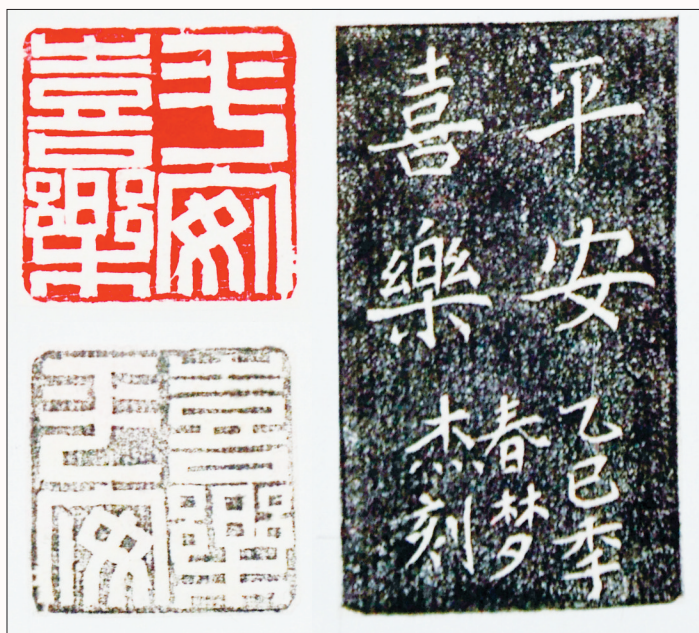 平安
喜樂
平安
喜樂
平安
喜樂
乙巳季
春梦
杰刻